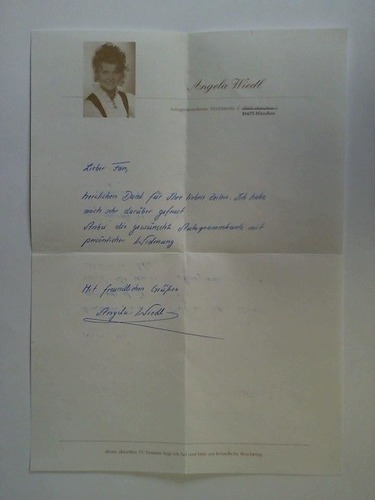 Angela Wiedl
81675 München
Lieber Fan,
herzlichen Dank für Ihre lieben Zeilen. Ich habe
mich sehr darüber gefreut
Anbei die gewünschte Autogrammkarte mit
persönlicher Widmung
Mit freundlichen Grüßen
Angela Wiedl